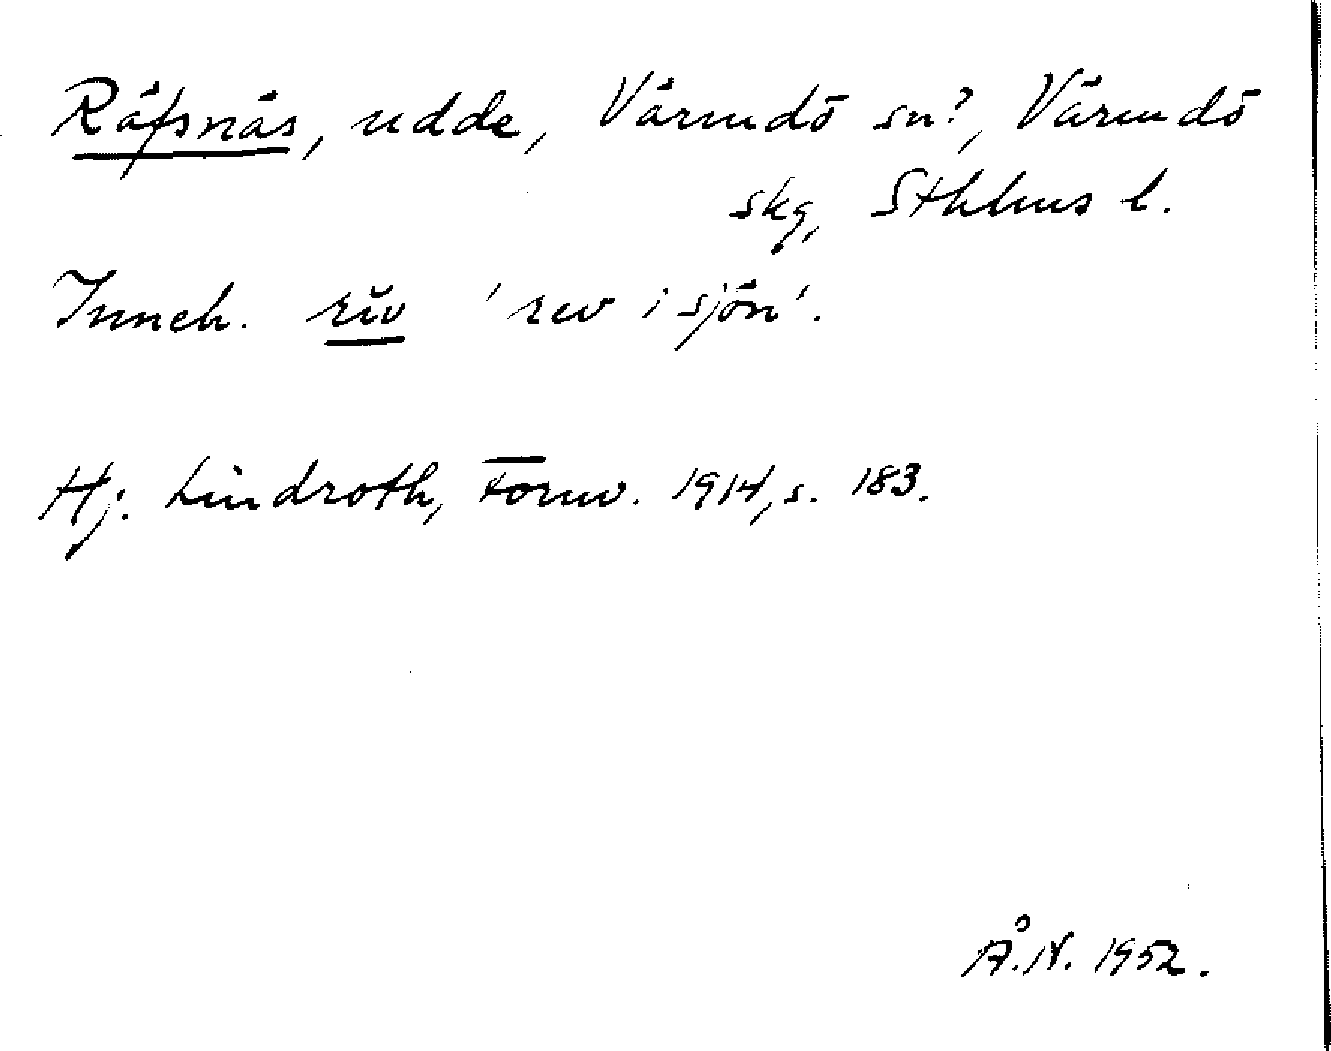 Räfsnäs, udde, Värmdö sn?, Värmdö
skg, Sthlms l.
Inneh. rĭv 'rev i sjön'.
Hj. Lindroth, Fornv. 1914, s. 183.
Å.N. 1952.